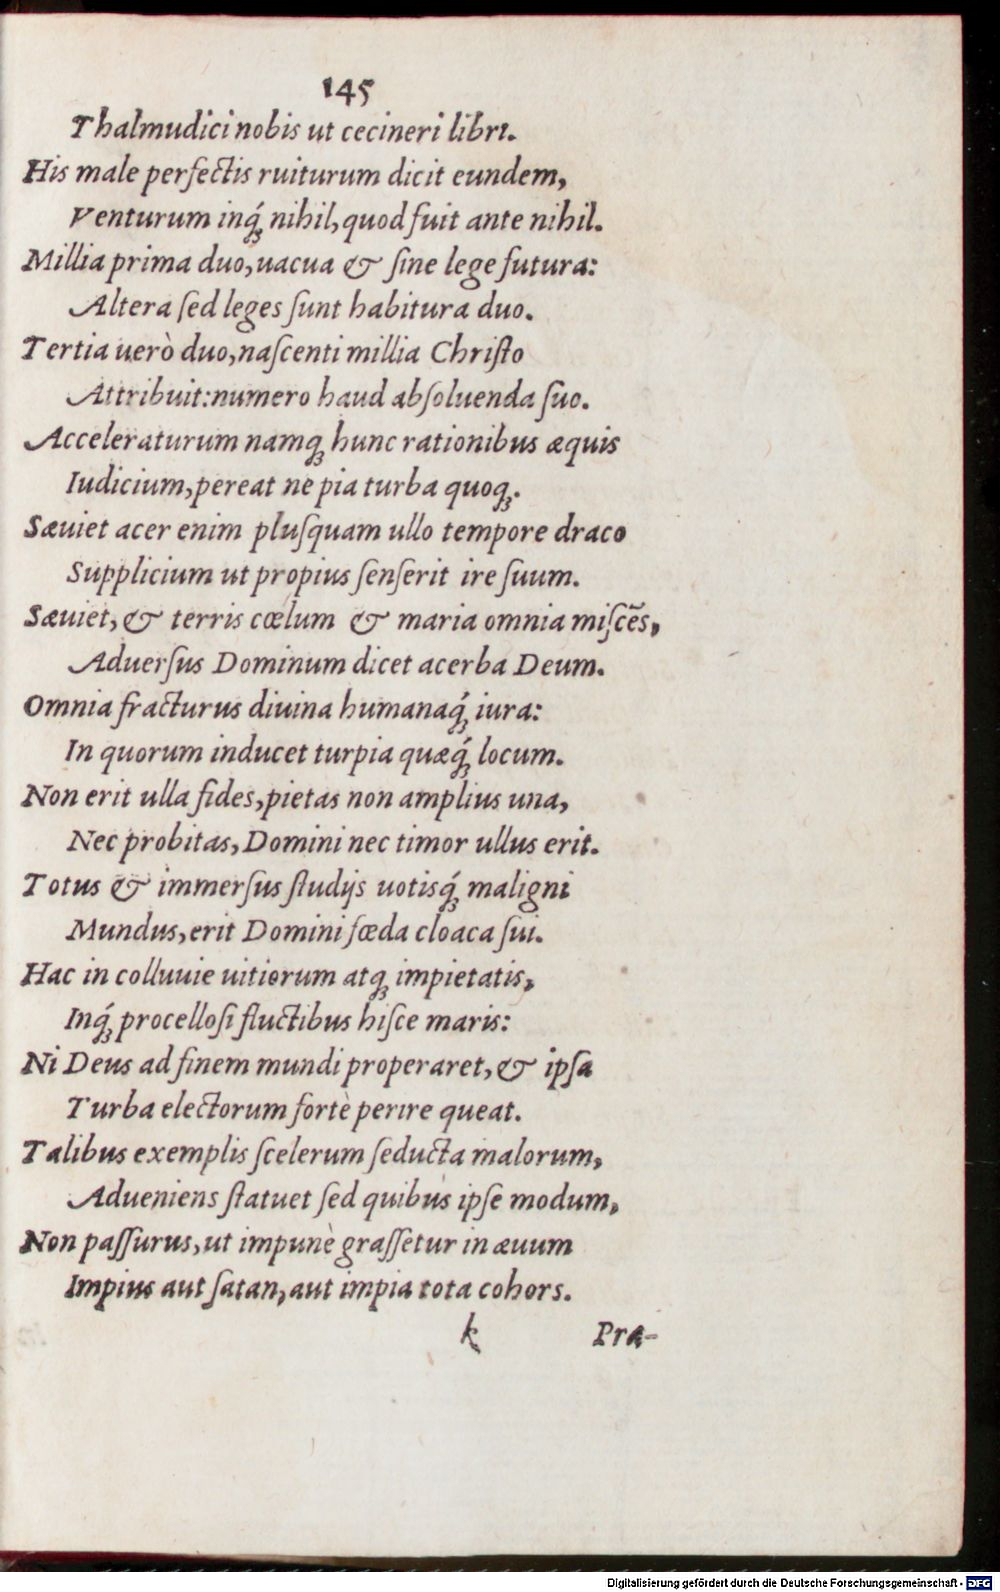 145
Thalmudici nobis ut cecineri libri.
His male perfectis ruiturum dicit eundem,
Venturum inq́ꝫ nihil, quod fuit ante nihil.
Millia prima duo, uacua & ſine lege futura:
Altera ſed leges ſunt habitura duo.
Tertia uerò duo, naſcenti millia Chriſto
Attribuit: numero haud abſoluenda ſuo.
Acceleraturum namqꝫ hunc rationibus æquis
Iudicium, pereat ne pia turba quoqꝫ.
Sæuiet acer enim pluſquam ullo tempore draco
Supplicium ut propius ſenſerit ire ſuum.
Sæuiet, & terris cœlum & maria omnia miſcēs,
Aduerſus Dominum dicet acerba Deum.
Omnia fracturus diuina humanaq́ꝫ iura:
In quorum inducet turpia quæq́ꝫ locum.
Non erit ulla fides, pietas non amplius una,
Nec probitas, Domini nec timor ullus erit.
Totus & immerſus ſtudijs uotisq́ꝫ maligni
Mundus, erit Domini fœda cloaca ſui.
Hac in colluuie uitiorum atqꝫ impietatis,
Inq́ꝫ procelloſi fluctibus hiſce maris:
Ni Deus ad finem mundi properaret, & ipſa
Turba electorum fortè perire queat.
Talibus exemplis ſcelerum ſeducta malorum,
Adueniens ſtatuet ſed quibus ipſe modum,
Non paſſurus, ut impunè graſſetur in æuum
Impius aut ſatan, aut impia tota cohors.
k Præ-
Digitalisierung gefördert durch die Deutsche Forschungsgemeinschaft - DFG